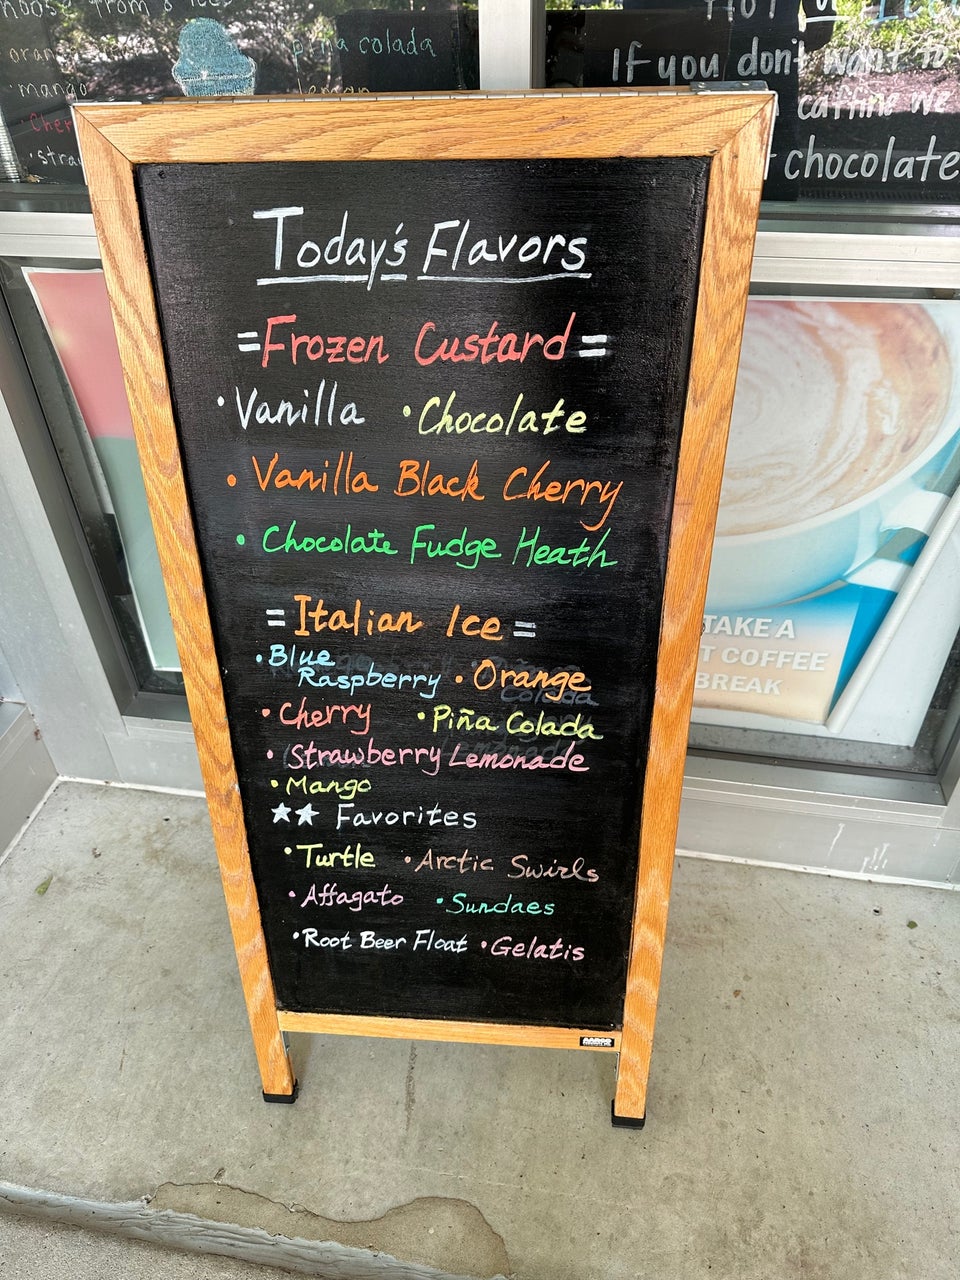 piña colada
oran
lemon
mango
Cher
straw
If you don't want to
caffine we
chocolate
Today's Flavors
=Frozen Custard=
•Vanilla •Chocolate
•Vanilla Black Cherry
•Chocolate Fudge Heath
=Italian Ice=
•Blue
Raspberry •Orange
•Cherry •Piña Colada
•Strawberry Lemonade
•Mango
★★ Favorites
•Turtle •Arctic Swirls
•Affagato •Sundaes
•Root Beer Float •Gelatis
TAKE A
T COFFEE
BREAK